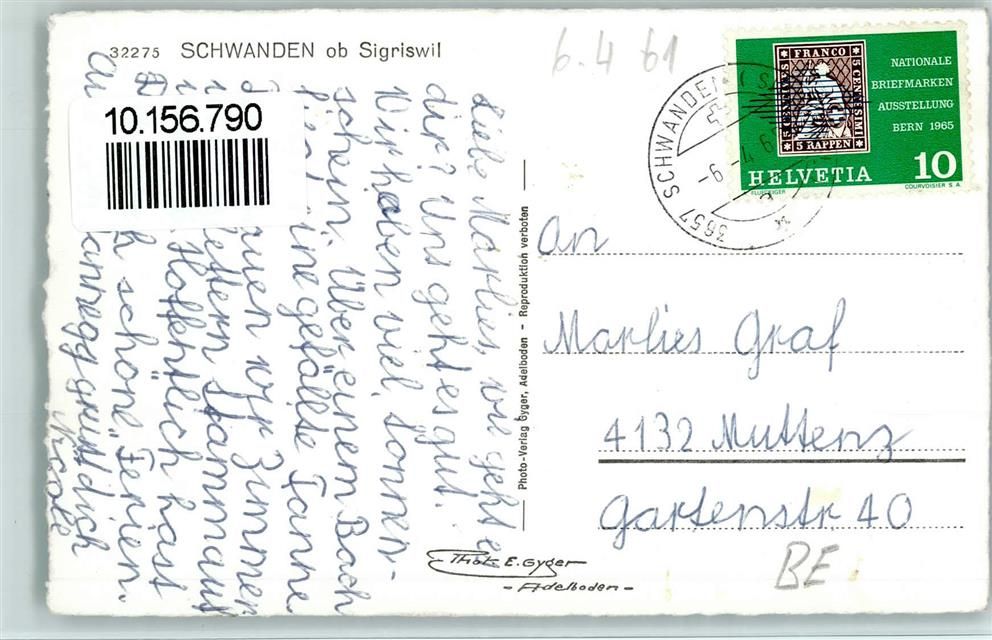 32275 SCHWANDEN ob Sigriswil
6.4 61
10.156.790
FRANCO
5 RAPPEN
NATIONALE
BRIEFMARKEN
AUSSTELLUNG
BERN 1965
HELVETIA 10
FLUECKIGER
COURVOISIER S.A.
3657 SCHWANDEN
-6.-4.6
Liebe Marlies, wie geht es
dir? Uns geht es gut.
Wir haben viel Sonnen-
schein. Über einem Bach
eine gefällte Tanne
wir Zimmer
Stamm auf
Hoffentlich hast
schöne Ferien.
grüsst dich
Nicole
Photo-Verlag Gyger, Adelboden - Reproduktion verboten
An
Marlies Graf
4132 Muttenz
Gartenstr 40
BE
Phot. E. Gyger
- Adelboden -